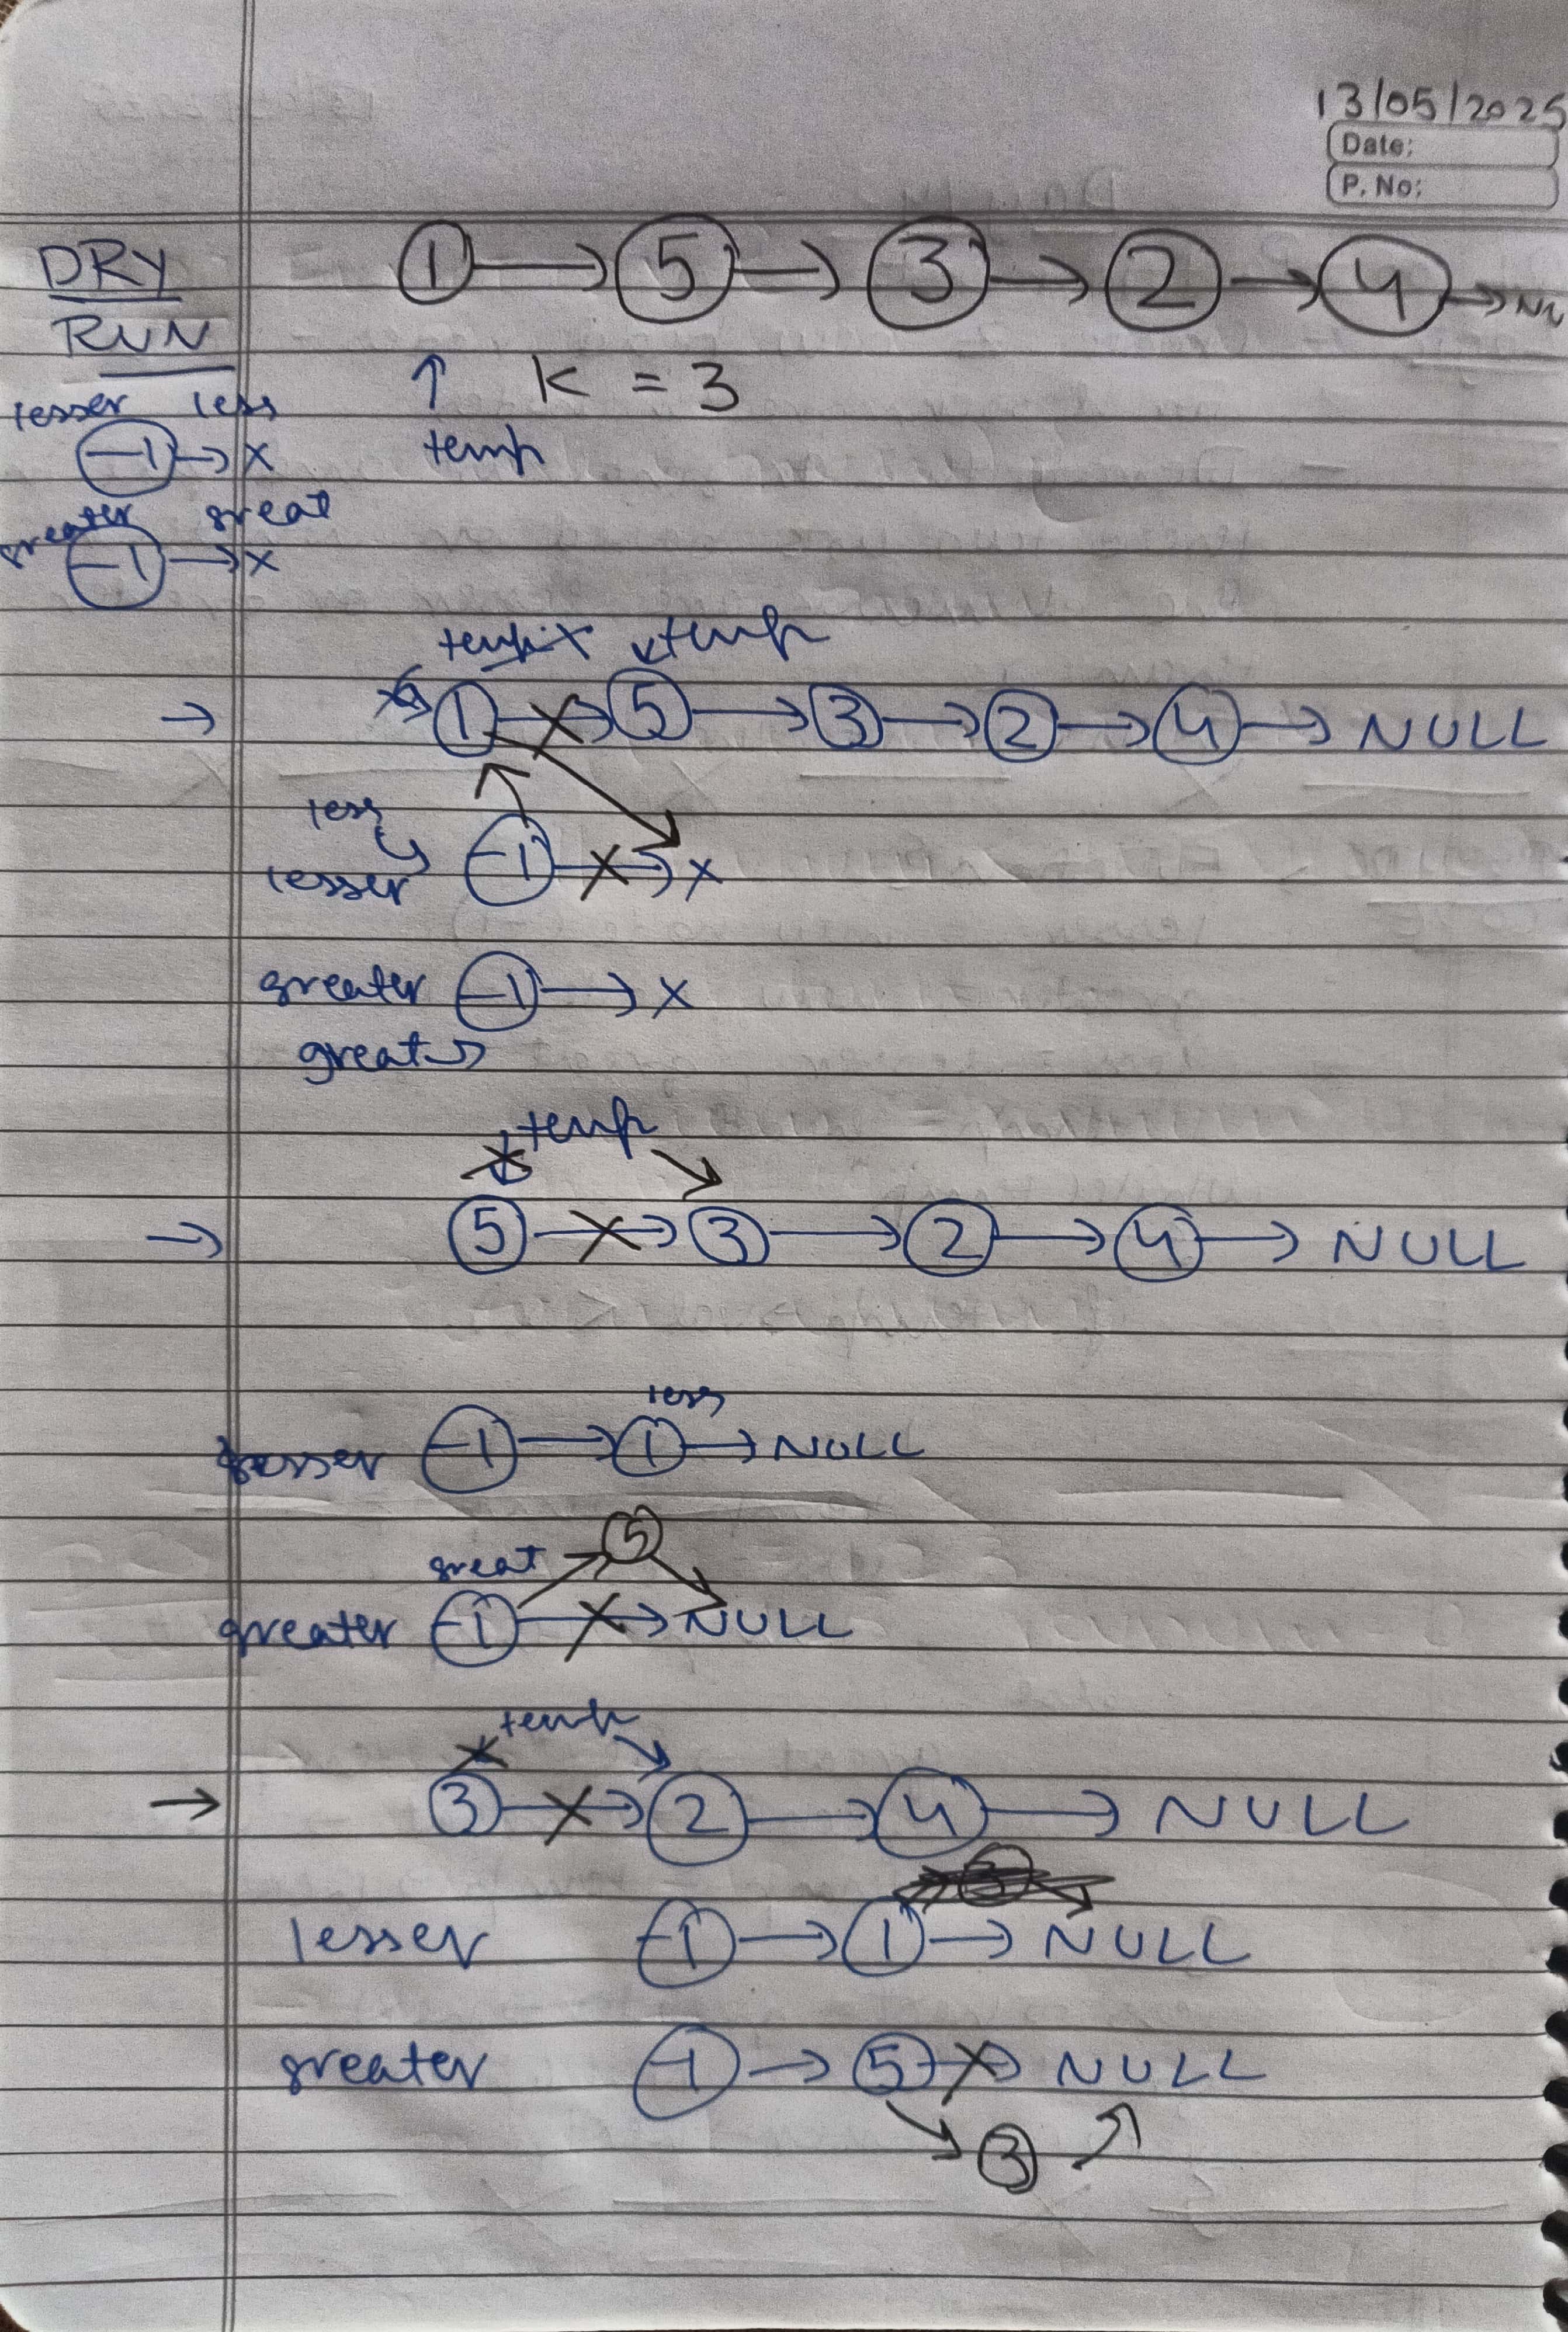 13/05/2025
Date:
P. No:
DRY
RUN
1 → 5 → 3 → 2 → 4 →
↑ K = 3
temp
lesser less
-1 → x
greater great
-1 → x
temp x temp
→ 1 → 5 → 3 → 2 → 4 → NULL
less
lesser -1 → x
greater -1 → x
great
temp
→ 5 → 3 → 2 → 4 → NULL
less
lesser -1 → 1 → NULL
5
great
greater -1 → NULL
temp
→ 3 → 2 → 4 → NULL
lesser -1 → 1 → NULL
greater -1 → 5 → NULL
3